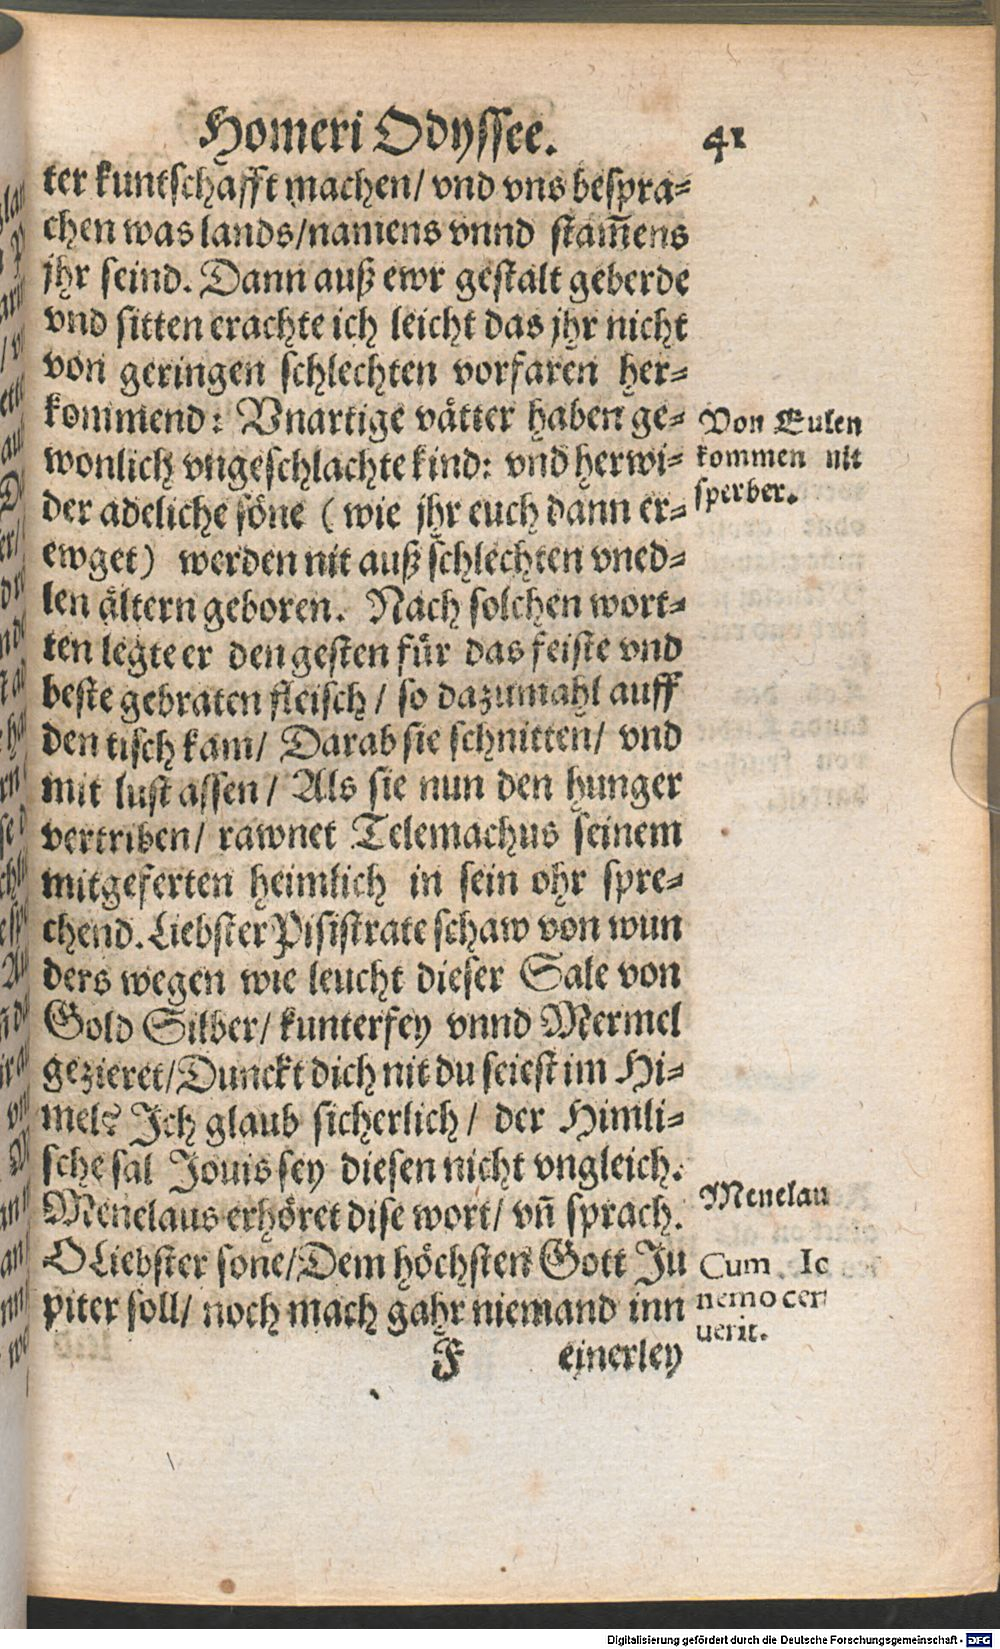 Homeri Odyssee. 41
ter kuntschafft machen/ vnd vns bespra=
chen was lands/namens vnnd stam̃ens
jhr seind. Dann auß ewr gestalt geberde
vnd sitten erachte ich leicht das jhr nicht
von geringen schlechten vorfaren her=
kommend: Vnartige vätter haben ge=
wonlich vngeschlachte kind: vnd herwi=
der adeliche söne (wie jhr euch dann er=
ewget) werden nit auß schlechten vned=
len ältern geboren. Nach solchen wort=
ten legte er den gesten für das feiste vnd
beste gebraten fleisch/ so dazumahl auff
den tisch kam/ Darab sie schnitten/ vnd
mit lust assen/ Als sie nun den hunger
vertriben/ rawnet Telemachus seinem
mitgeferten heimlich in sein ohr spre=
chend. Liebster Pisistrate schaw von wun
ders wegen wie leucht dieser Sale von
Gold Silber/ kunterfey vnnd Mermel
gezieret/Dunckt dich nit du seiest im Hi=
mel? Ich glaub sicherlich/ der Himli=
sche sal Jouis sey diesen nicht vngleich.
Menelaus erhöret dise wort/ vñ sprach.
O Liebster sone/Dem höchsten Gott Ju
piter soll/ noch mach gahr niemand inn
F einerley
Von Eulen
kommen nit
sperber.
Menelau
Cum Io
nemo cer
uerit.
Digitalisierung gefördert durch die Deutsche Forschungsgemeinschaft - DFG